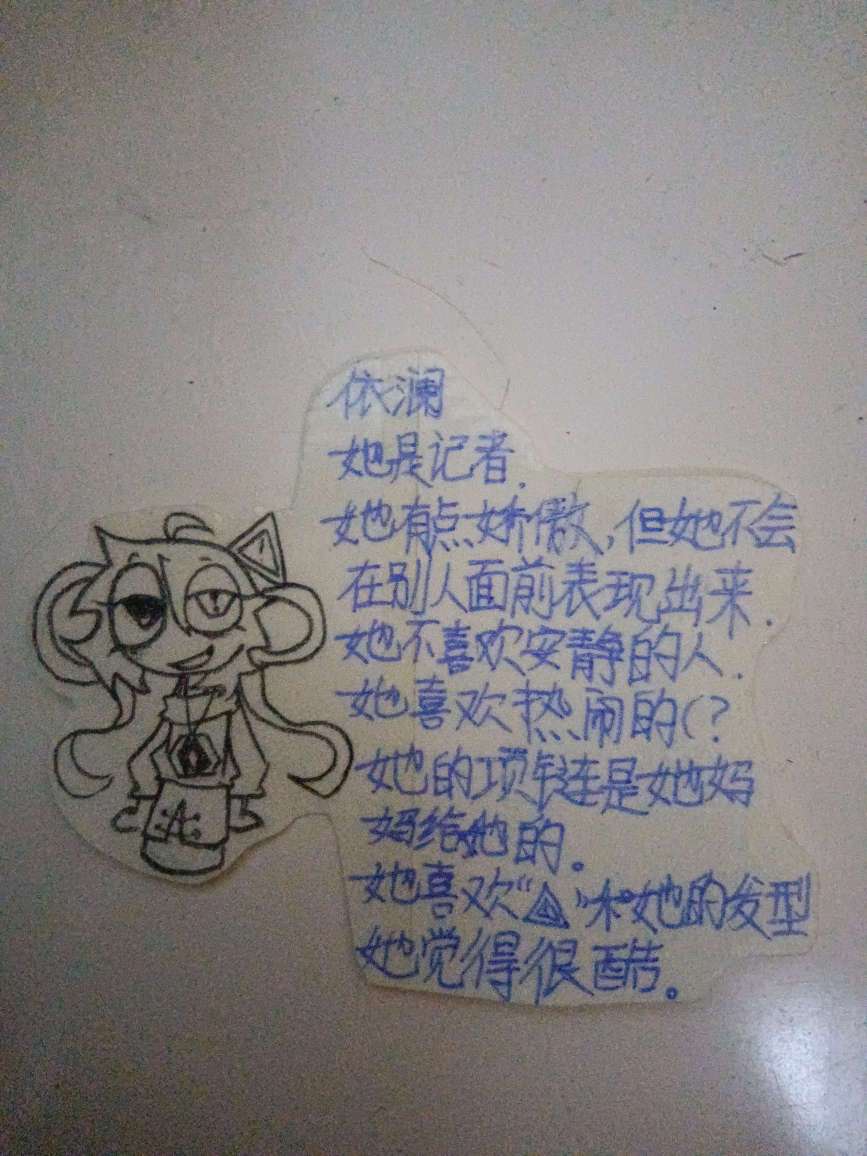 依澜
她是记者.
她有点娇傲,但她不会
在别人面前表现出来.
她不喜欢安静的人.
她喜欢热闹的(?
她的项链是她妈
妈给她的。
她喜欢“△”和她的发型
她觉得很酷。
A